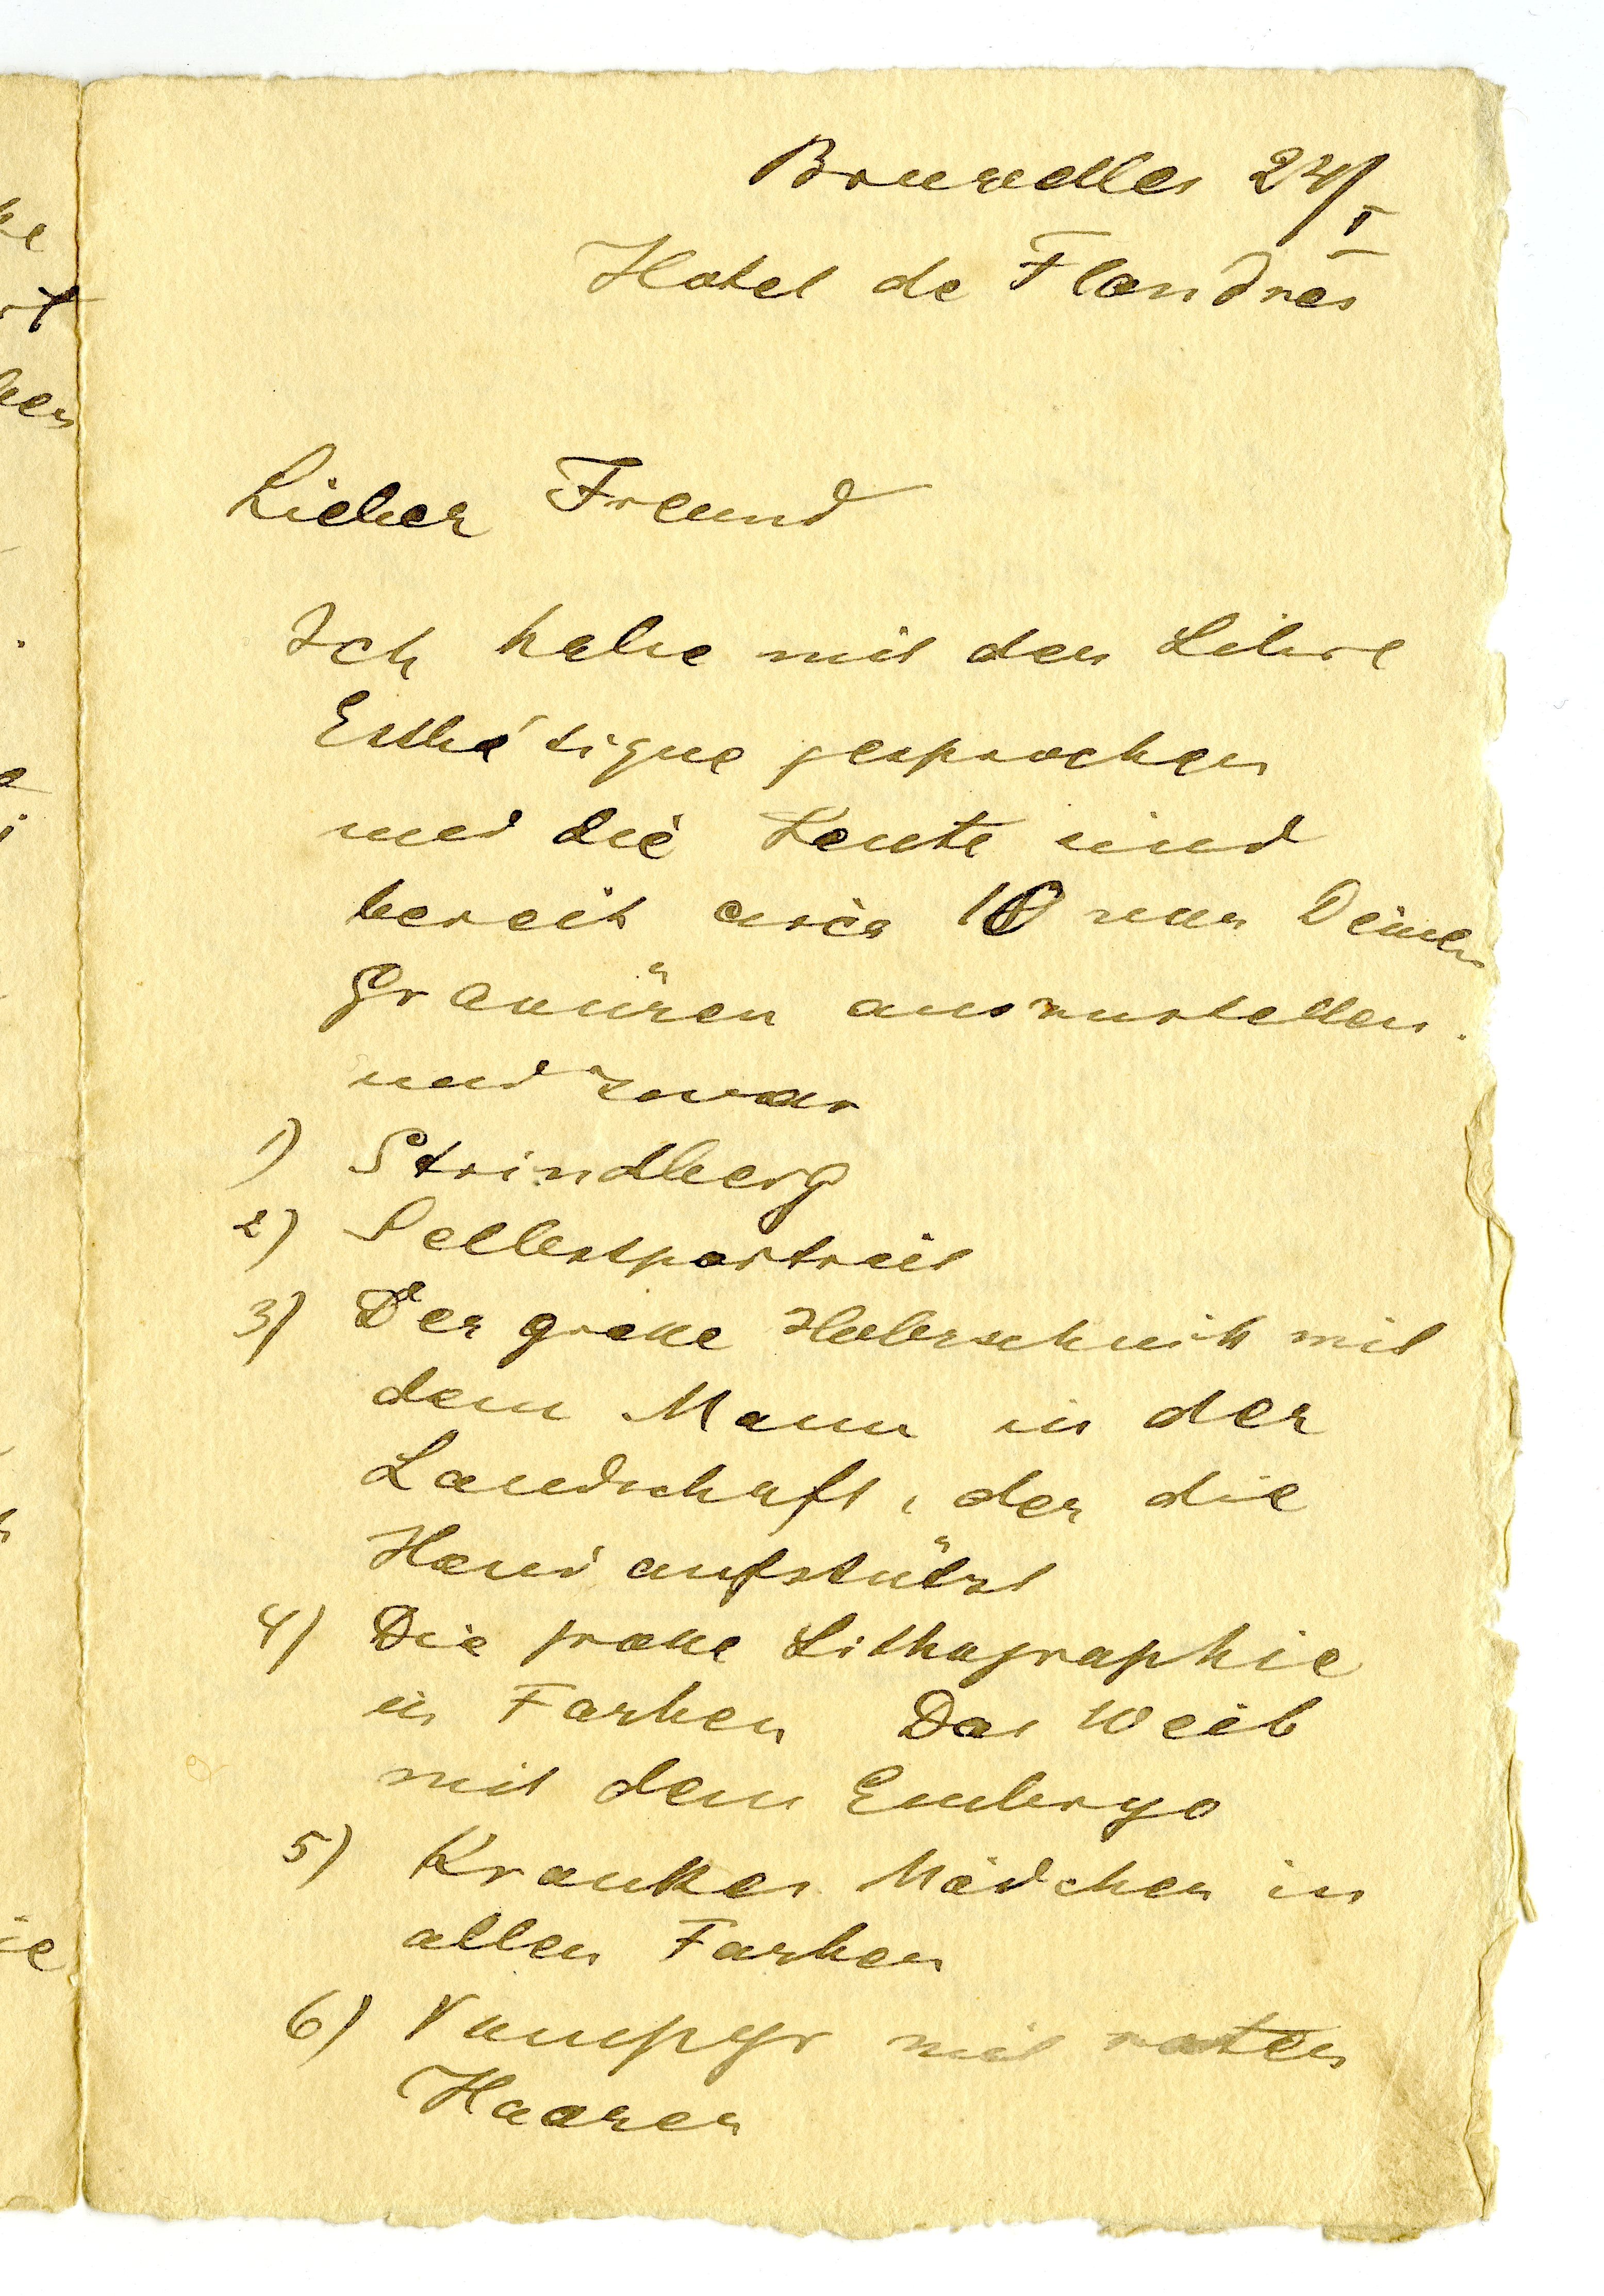 Bruxelles 24/I
Hotel de Flandres
Lieber Freund
Ich habe mit der Libre
Esthétique gesprochen
und die Leute sind
bereit circa 10 von Deinen
Gravüren auszustellen.
und zwar
1) Strindberg
2) Selbstportrait
3) Der grosse Holzschnitt mit
dem Mann in der
Landschaft, der die
Hand aufstützt
4) Die grosse Lithographie
in Farben Das Weib
mit dem Embryo
5) Krankes Mädchen in
allen Farben
6) Vampyr mit roten
Haaren